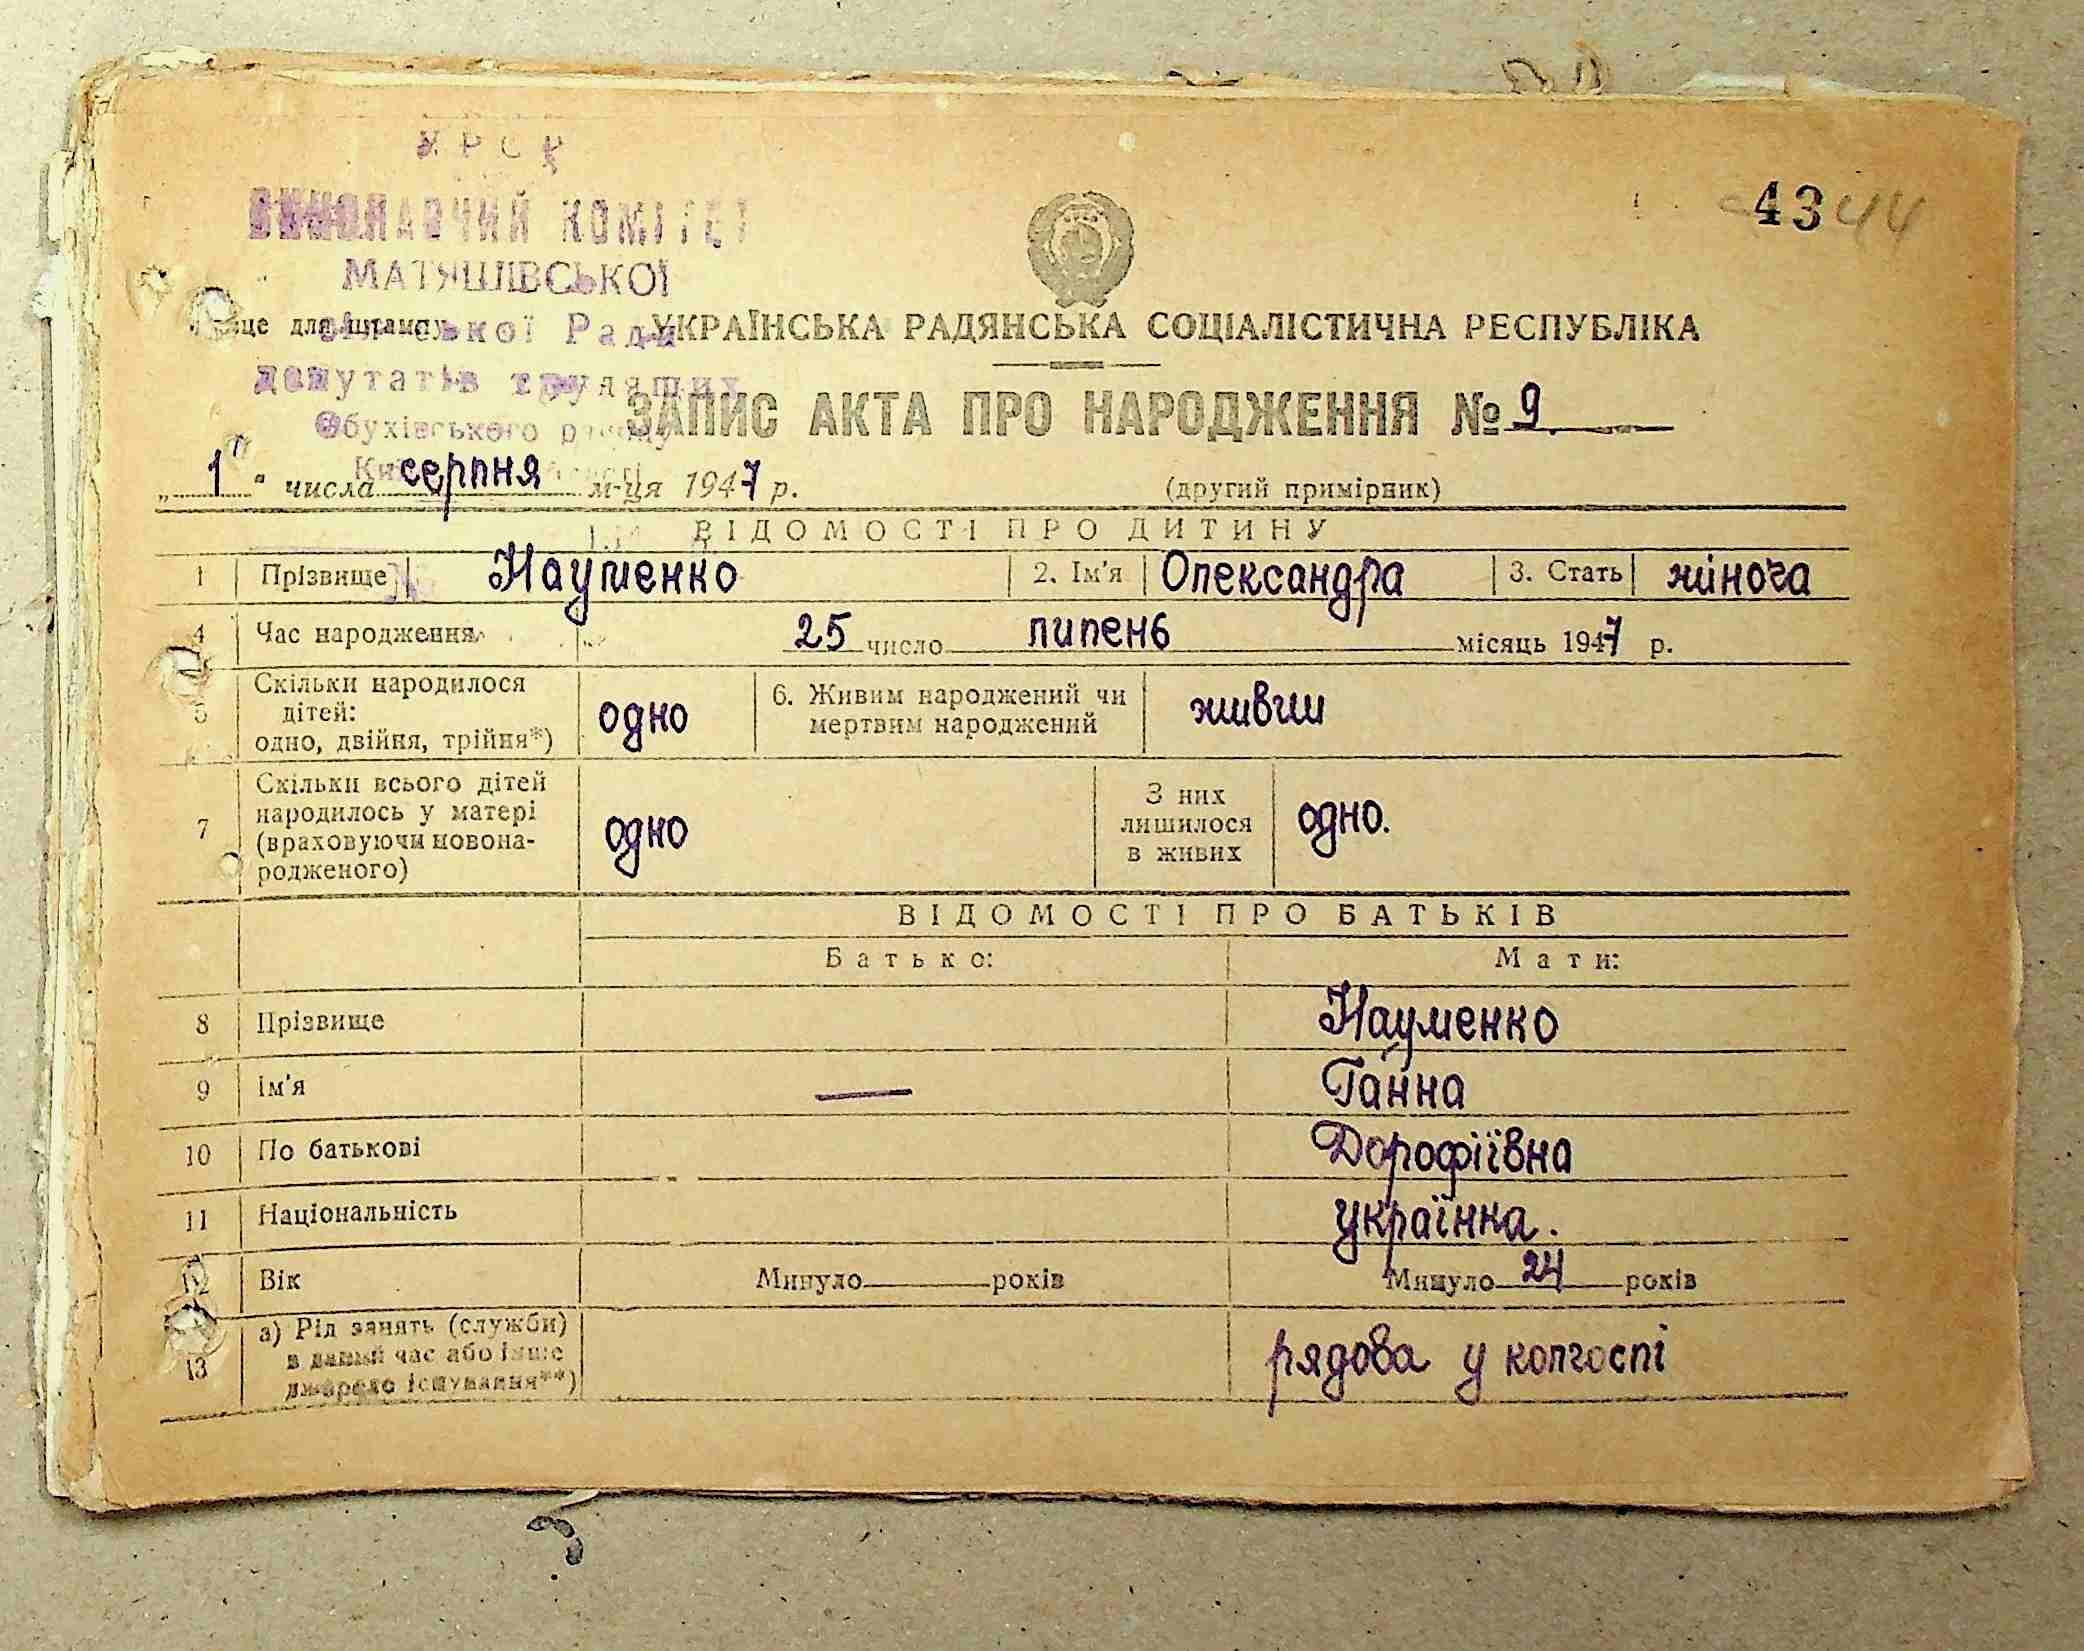 УРСР
ВИКОНАВЧИЙ КОМІТЕТ
МАТЯШІВСЬКОЇ
сільської Ради
депутатів трудящих
Обухівського району
43 44
це для штампу
УКРАЇНСЬКА РАДЯНСЬКА СОЦІАЛІСТИЧНА РЕСПУБЛІКА
ЗАПИС АКТА ПРО НАРОДЖЕННЯ № 9
„1" числа серпня м-ця 1947 р. (другий примірник)
ВІДОМОСТІ ПРО ДИТИНУ
1 Прізвище Науменко 2. Ім'я Олександра 3. Стать жіноча
4 Час народження 25 число липень місяць 1947 р.
5 Скільки народилося дітей: одно, двійня, трійня*) одно 6. Живим народжений чи мертвим народжений живим
7 Скільки всього дітей народилось у матері (враховуючи новона-родженого) одно З них лишилося в живих одно.
ВІДОМОСТІ ПРО БАТЬКІВ
Батько: Мати:
8 Прізвище Науменко
9 Ім'я — Ганна
10 По батькові Дорофіївна
11 Національність українка.
12 Вік Минуло років Минуло 24 років
13 а) Рід занять (служби) в даний час або інше джерело існування**) рядова у колгоспі